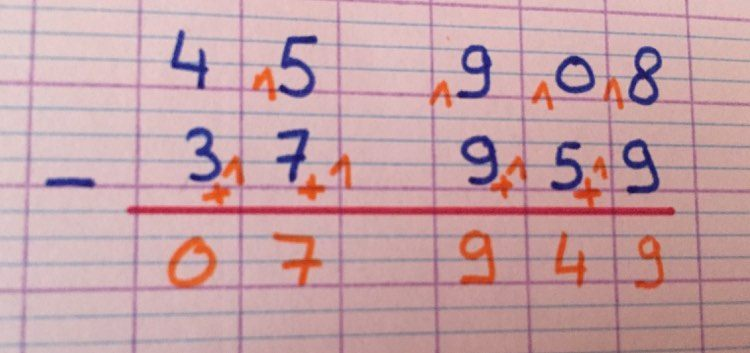 4 ₁5 ₁9 ₁0 ₁8
− 3+1 7+1 9+1 5+1 9
0 7 9 4 9